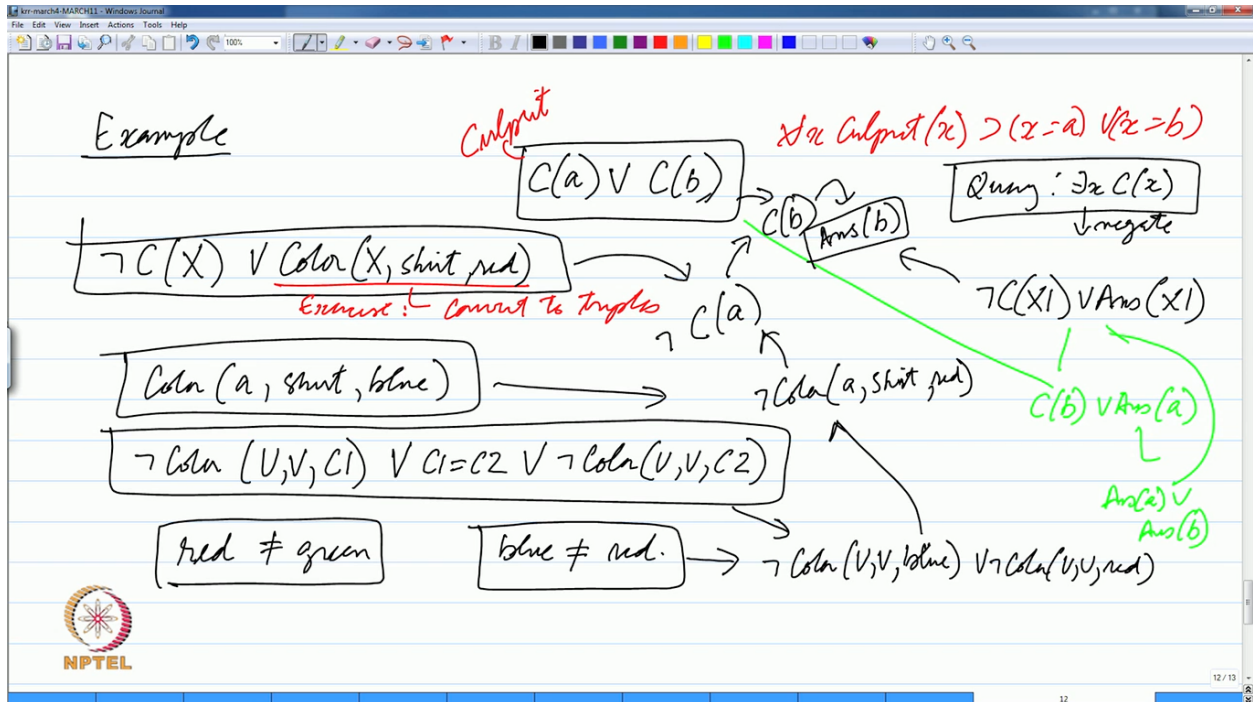 krr-march4-MARCH11 - Windows Journal
File Edit View Insert Actions Tools Help
100%
B I
Example
Culprit
∀x Culprit(x) ⊃ (x=a) ∨ (x=b)
C(a) ∨ C(b)
Query: ∃x C(x)
↓negate
C(b)
Ans(b)
¬C(X) ∨ Color(X, shirt, red)
Exercise: Convert to triples
¬C(a)
¬C(X1) ∨ Ans(X1)
Color(a, shirt, blue)
¬Color(a, shirt, red)
C(b) ∨ Ans(a)
¬Color(U,V,C1) ∨ C1=C2 ∨ ¬Color(U,V,C2)
Ans(a) ∨
Ans(b)
red ≠ green
blue ≠ red.
¬Color(U,V,blue) ∨ ¬Color(U,V,red)
NPTEL
12 / 13
12